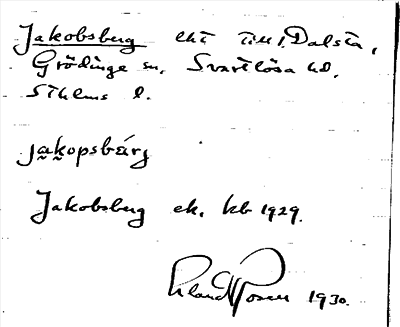 Jakobsberg lht till Dalsta,
Grödinge sn, Svartlösa hd,
Sthlms l.
jakopsbärj
Jakobsberg ek. kb 1929.
Rosen 1930.